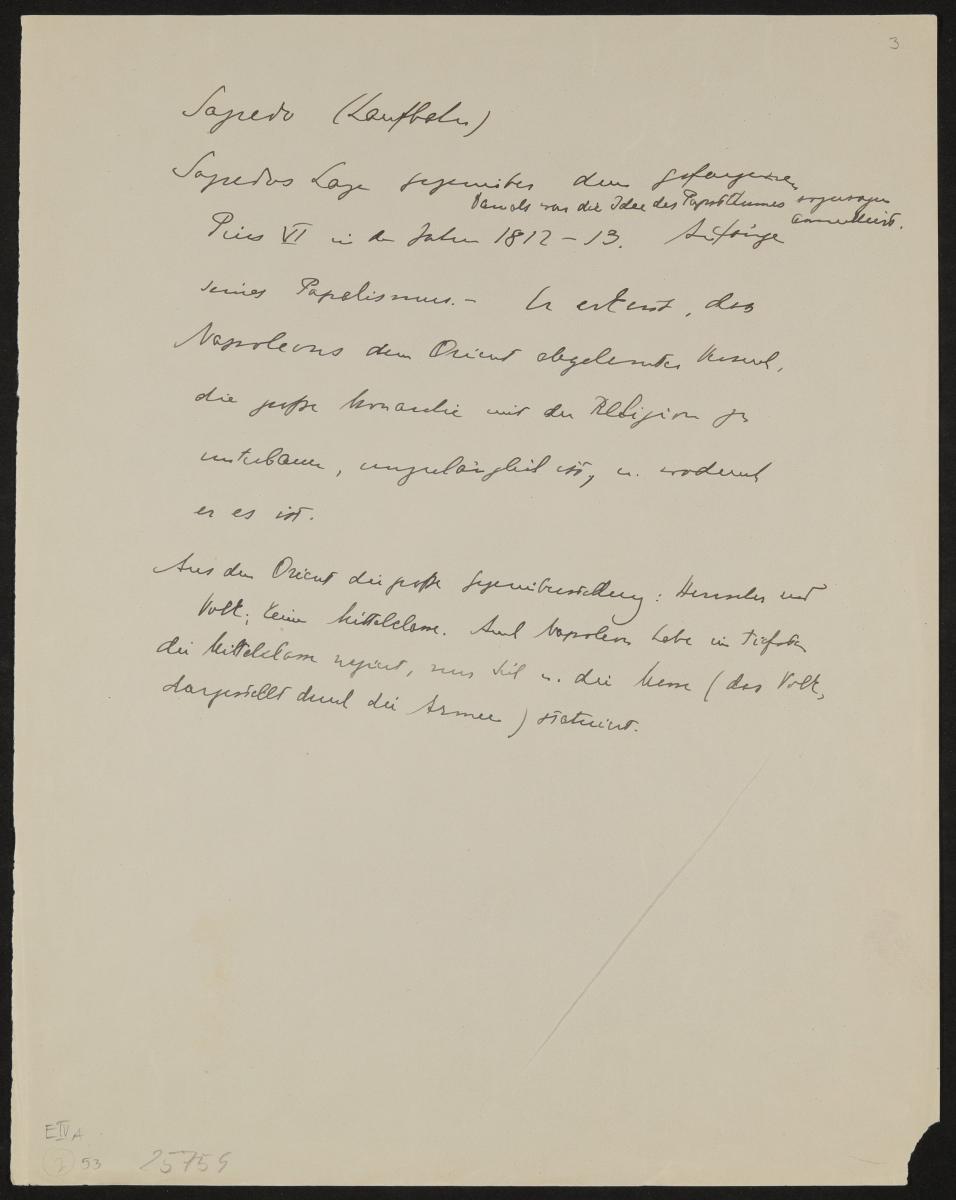 3
Sagredo (Laufbahn)
Sagredos Lage gegenüber dem gefangenen
Damals war die Idee des Papsttumes sozusagen
annulliert.
Pius VI in den Jahren 1812–13. Anfänge
seines Papalismus. – Er erkennt, dass
Napoleons dem Orient abgelernter Versuch,
die große Monarchie mit der Religion zu
unterbauen, unzulänglich ist, u. wodurch
er es ist.
Aus dem Orient die große Gegenüberstellung: Herrscher und
Volk; keine Mittelclasse. Auch Napoleon habe im tiefsten
die Mittelclasse negiert, nur sich u. die Masse (das Volk,
dargestellt durch die Armee) statuiert.
E IV A
53
25759